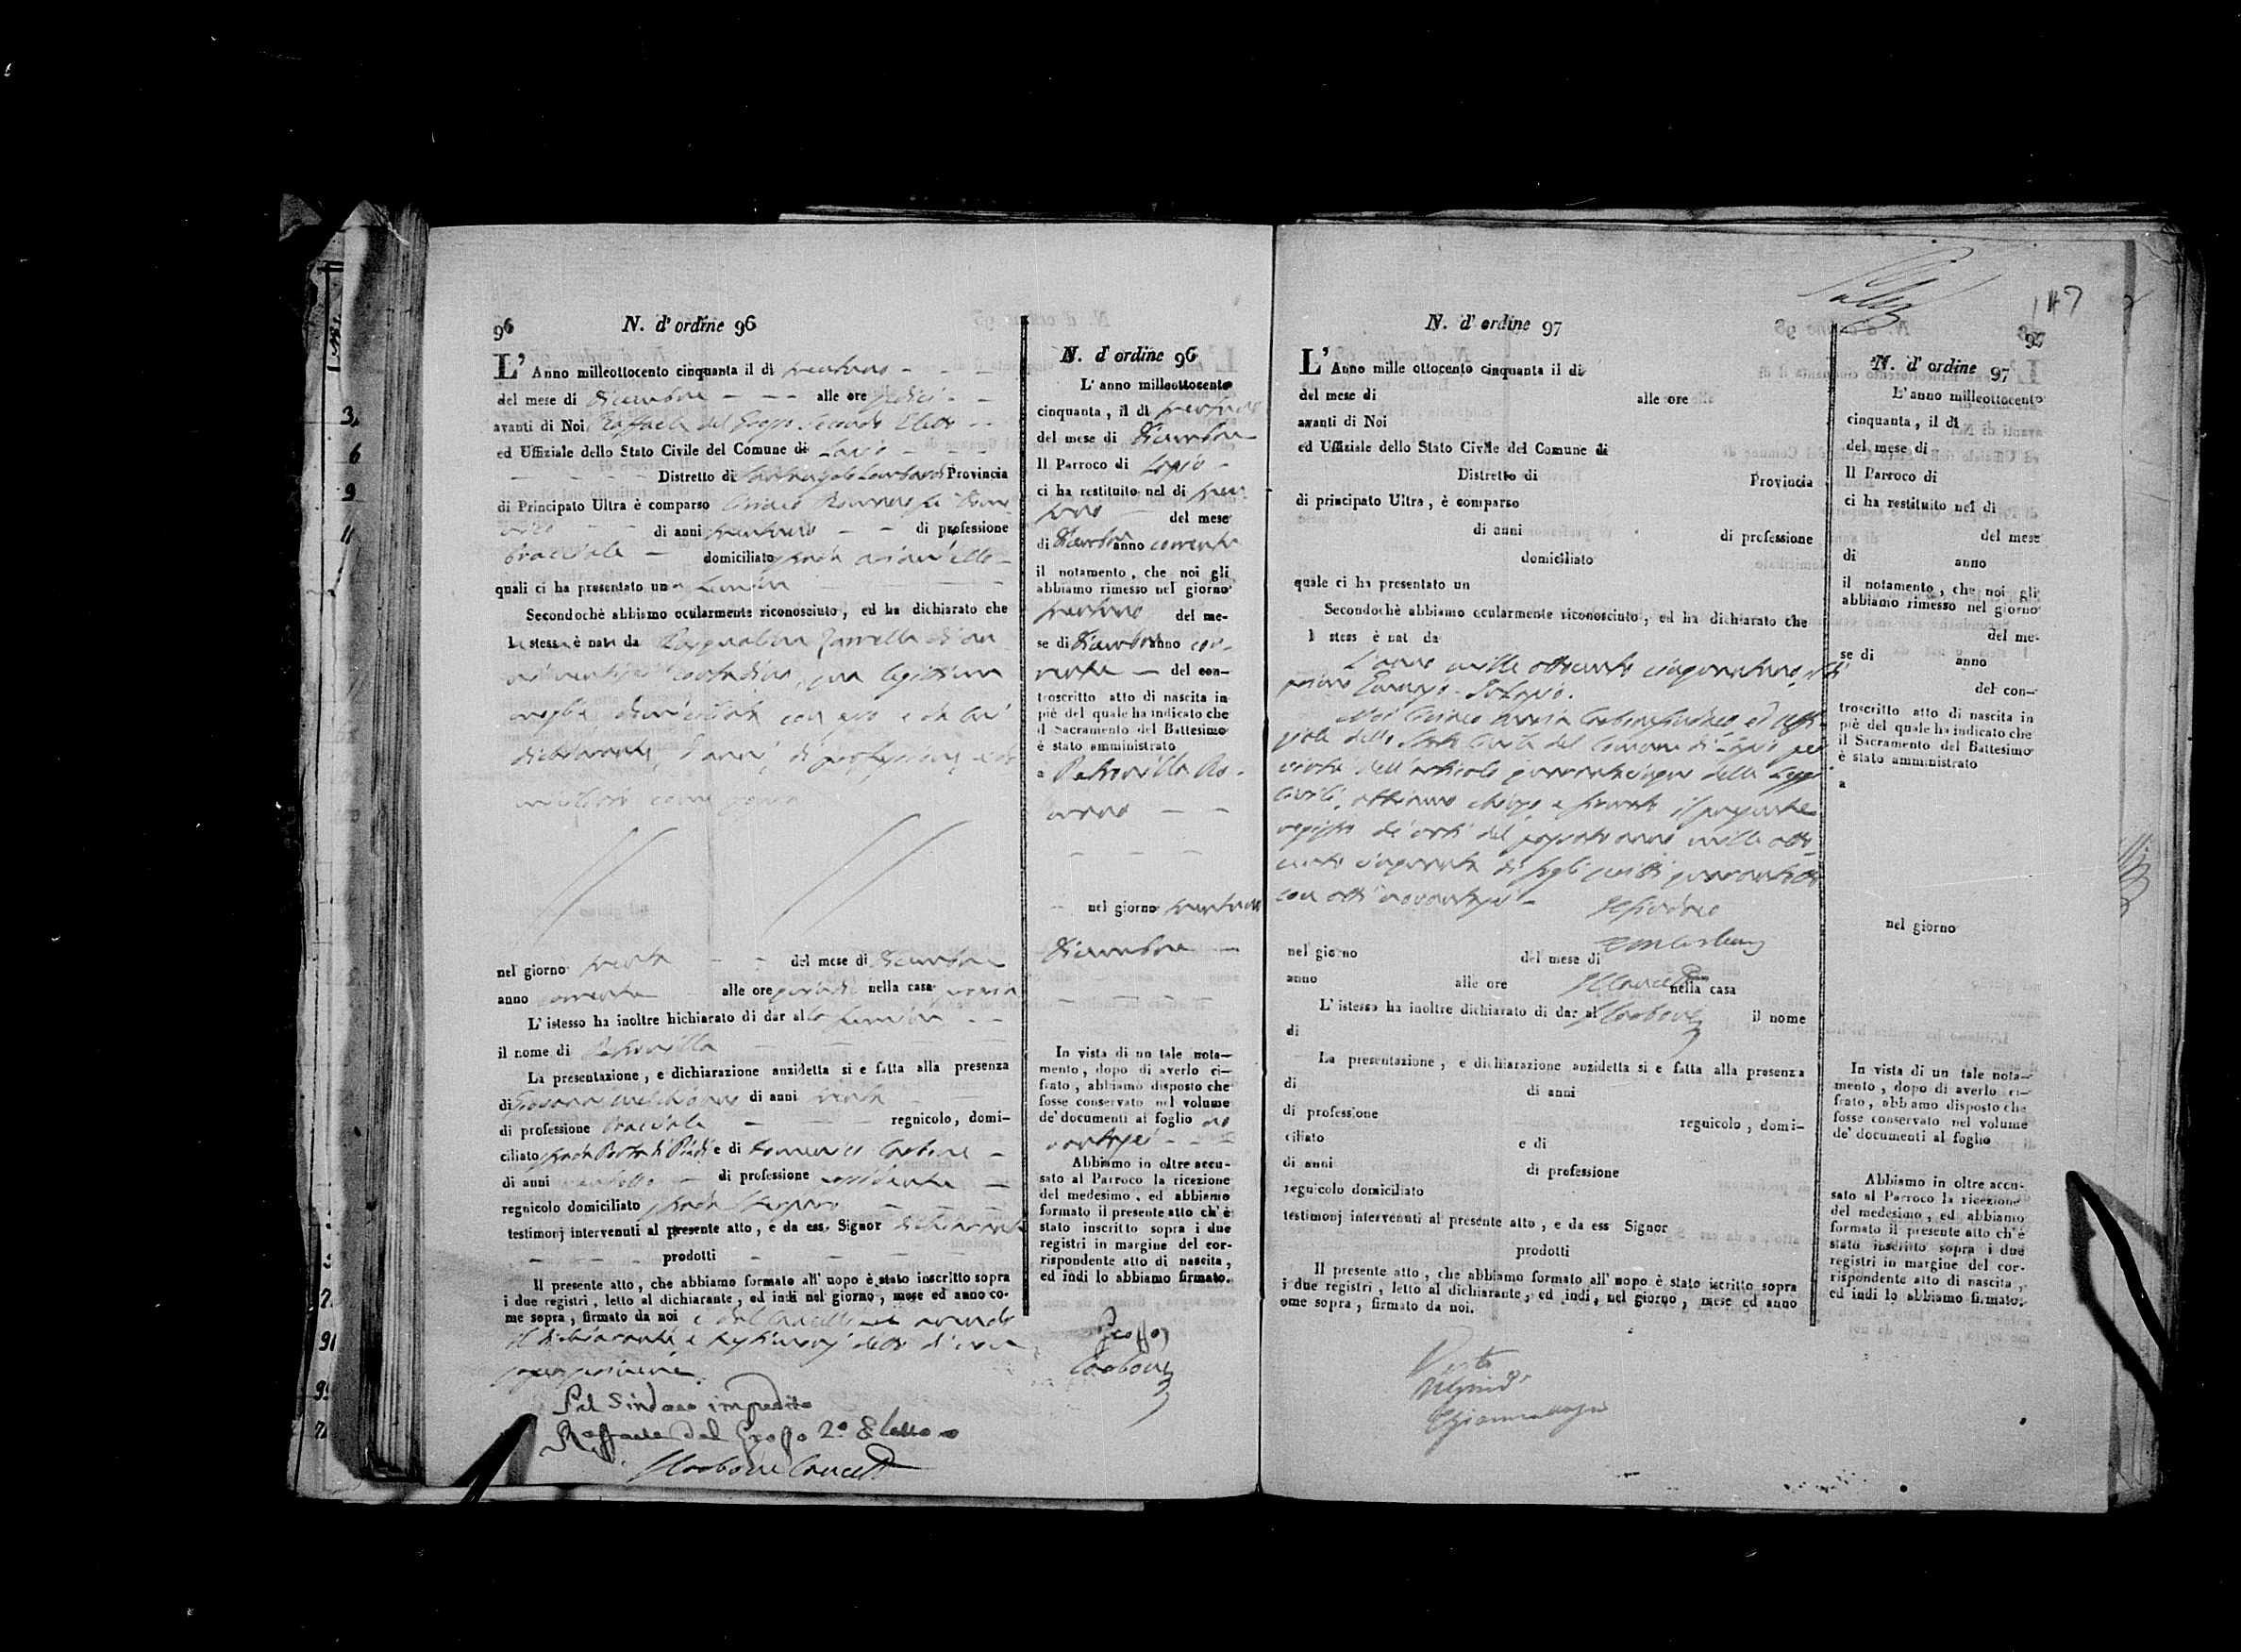 96
N. d'ordine 96
L' Anno milleottocento cinquanta il di trentuno
del mese di Dicembre alle ore sedici
avanti di Noi Raffaele del Grosso Secondo Eletto
ed Uffiziale dello Stato Civile del Comune di Lapio
Distretto di Santangelo Lombardi Provincia
di Principato Ultra è comparso Ciriaco
di anni trentuno di professione
bracciale domiciliato strada
quali ci ha presentato una femina
Secondochè abbiamo ocularmente riconosciuto, ed ha dichiarato che
l stessa è nata da Pasqualina Zarrella di an
ni contadina, sua legittima
moglie domiciliata con esso e da lui
dichiarante, d'anni, di professione, e do
miciliato come sopra
nel giorno trenta del mese di Dicembre
anno corrente alle ore nella casa
L' istesso ha inoltre hichiarato di dar alla femina
il nome di Petronilla
La presentazione, e dichiarazione anzidetta si e fatta alla presenza
di Giovanni Melchionno di anni trenta
di professione bracciale regnicolo, domi-
ciliato strada Porta di Piedi e di Domenico Carbone
di anni di professione
regnicolo domiciliato strada
testimonj intervenuti al presente atto, e da ess. Signor dichiarante
prodotti
Il presente atto, che abbiamo formato all' uopo è stato inscritto sopra
i due registri, letto al dichiarante, ed indi nel giorno, mese ed anno co-
me sopra, firmato da noi e dal Cancelliere avendo
il dichiarante e testimonj detto di non
saper scrivere
Pel Sindaco impedito
Raffaele del Grosso 2º Eletto
Carbone Cancell
N. d'ordine 96
L' anno milleottocento
cinquanta, il di trentuno
del mese di Dicembre
Il Parroco di Lapio
ci ha restituito nel di tren
tuno del mese
di Dicembre anno corrente
il notamento, che noi gli
abbiamo rimesso nel giorno
trentuno del me-
se di Dicembre anno cor-
rente del con-
troscritto atto di nascita in
piè del quale ha indicato che
il Sacramento del Battesimo
è stato amministrato
a Petronilla Ro-
nel giorno trentuno
Dicembre
In vista di un tale nota-
mento, dopo di averlo ci-
frato, abbiamo disposto che
fosse conservato nel volume
de' documenti al foglio no
vantasei
Abbiamo in oltre accu-
sato al Parroco la ricezione
del medesimo, ed abbiamo
formato il presente atto ch'è
stato inscritto sopra i due
registri in margine del cor-
rispondente atto di nascita,
ed indi lo abbiamo firmato.
Grosso
Carbone
147
97
N. d' ordine 97
L' Anno mille ottocento cinquanta il di
del mese di alle ore
avanti di Noi
ed Uffiziale dello Stato Civile del Comune di
Distretto di Provincia
di principato Ultra, è comparso
di anni di professione
domiciliato
quale ci ha presentato un
Secondochè abbiamo ocularmente riconosciuto, ed ha dichiarato che
l stess è nat da
L'anno mille ottocento cinquantuno, il di
primo Gennajo. In Lapio.
Noi Ciriaco Maria Carbone Sindaco ed Uffi-
ziale dello Stato Civile del Comune di Lapio
dell'articolo quarantacinque delle Leggi
Civili, abbiamo chiuso e firmato il presente
registro di atti del passato anno mille otto
cento cinquanta di fogli scritti quarantotto
con atti novantasei
Il Sindaco
nel giorno del mese di
anno alle ore nella casa
L' istesso ha inoltre dichiarato di dar al il nome
di
Carbone
La presentazione, e dichiarazione anzidetta si e fatta alla presenza
di di anni
di professione regnicolo, domi-
ciliato e di
di anni di professione
regnicolo domiciliato
testimonj intervenuti al presente atto, e da ess Signor
prodotti
Il presente atto, che abbiamo formato all' uopo è stato iscritto sopra
i due registri, letto al dichiarante, ed indi, nel giorno, mese ed anno
ome sopra, firmato da noi.
Visto
N. d' ordine 97
L' anno milleottocento
cinquanta, il di
del mese di
Il Parroco di
ci ha restituito nel di
del mese
di anno
il notamento, che noi gli
abbiamo rimesso nel giorno
del me-
se di anno
del con-
troscritto atto di nascita in
piè del quale ha indicato che
il Sacramento del Battesimo
è stato amministrato
a
nel giorno
In vista di un tale nota-
mento, dopo di averlo ci-
frato, abbiamo disposto che
fosse conservato nel volume
de' documenti al foglio
Abbiamo in oltre accu-
sato al Parroco la ricezione
del medesimo, ed abbiamo
formato il presente atto ch'è
stato inscritto sopra i due
registri in margine del cor-
rispondente atto di nascita,
ed indi lo abbiamo firmato.